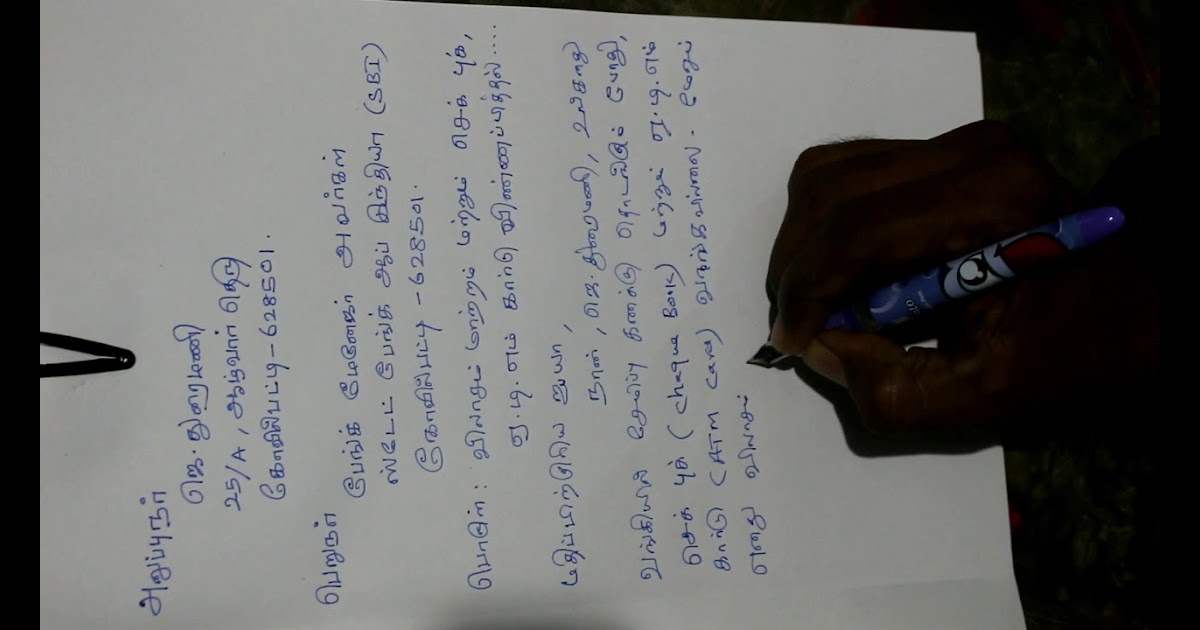 அனுப்புநர்
ஜெ.துரைமணி
25/A, ஆழ்வார் தெரு
கோவில்பட்டி - 628501.
பெறுநர்
பேங்க் மேனேஜர் அவர்கள்
ஸ்டேட் பேங்க் ஆப் இந்தியா (SBI)
கோவில்பட்டி - 628501.
பொருள் : விலாசம் மாற்றம் மற்றும் செக் புக்,
ஏ.டி.எம் கார்டு விண்ணப்பித்தல்....
மதிப்பிற்குரிய ஐயா,
நான், ஜெ.துரைமணி, உங்களது
வங்கியில் சேமிப்பு கணக்கு தொடங்கும் போது,
செக் புக் (Cheque Book) மற்றும் ஏ.டி.எம்
கார்டு (ATM Card) வாங்கவில்லை. மேலும்
எனது விலாசம்